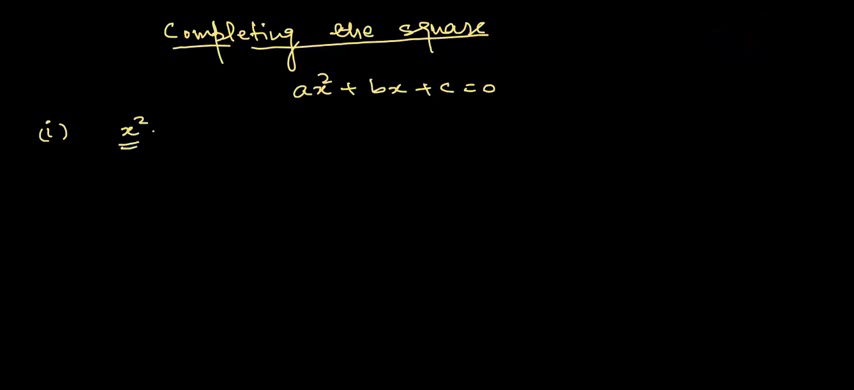 Completing the square
ax² + bx + c = 0
(i) x².